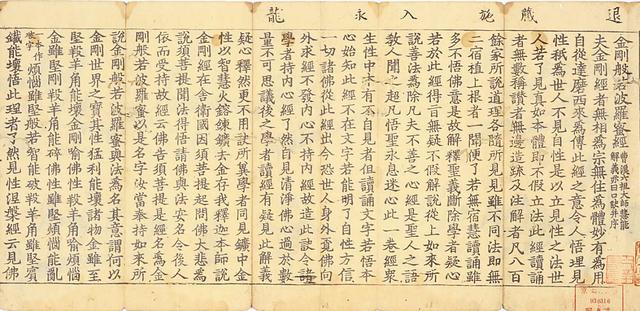 退臟施入永龍
金剛般若波羅蜜經
曹溪六祖大師慧能
解義亦曰口訣并序
夫金剛經者無相為宗無住為體妙有為用
自從達磨西來為傳此經之意令人悟理見
性秖為世人不見自性是以立見性之法世
人若了見真如本體即不假立法此經讀誦
者無數稱讚者無邊造疏及注解者凡八百
餘家所說道理各隨所見見雖不同法即無
二宿植上根者一聞便了若無宿慧讀誦雖
多不悟佛意是故解釋聖義斷除學者疑心
若於此經得旨無疑不假解說從上如來所
說善法為除凡夫不善之心經是聖人之語
教人聞之超凡悟聖永息迷心此一卷經眾
生性中本有不自見者但讀誦文字若悟本
心始知此經不在文字若能明了自性方信
一切諸佛從此經出今恐世人身外覓佛向
外求經不發內心不持內經故造此訣令諸
學者持內心經了然自見清淨佛心過於數
量不可思議後之學者讀經有疑見此解義
疑心釋然更不用訣所冀學者同見鑛中金
性以智慧火鎔鍊鑛去金存我釋迦本師說
金剛經在舍衛國因須菩提起問佛大悲為
說須菩提聞法得悟請佛與法安名令後人
依而受持故經云佛告須菩提是經名為金
剛般若波羅蜜以是名字汝當奉持如來所
說金剛般若波羅蜜與法為名其意謂何以
金剛世界之寶其性猛利能壞諸物金雖至
堅羖羊角能壞金剛喻佛性羖羊角喻煩惱
金雖堅剛羖羊角能碎佛性雖堅煩惱能亂
煩惱雖堅般若智能破羖羊角雖堅賓
鐵能壞悟此理者了然見性涅槃經云見佛